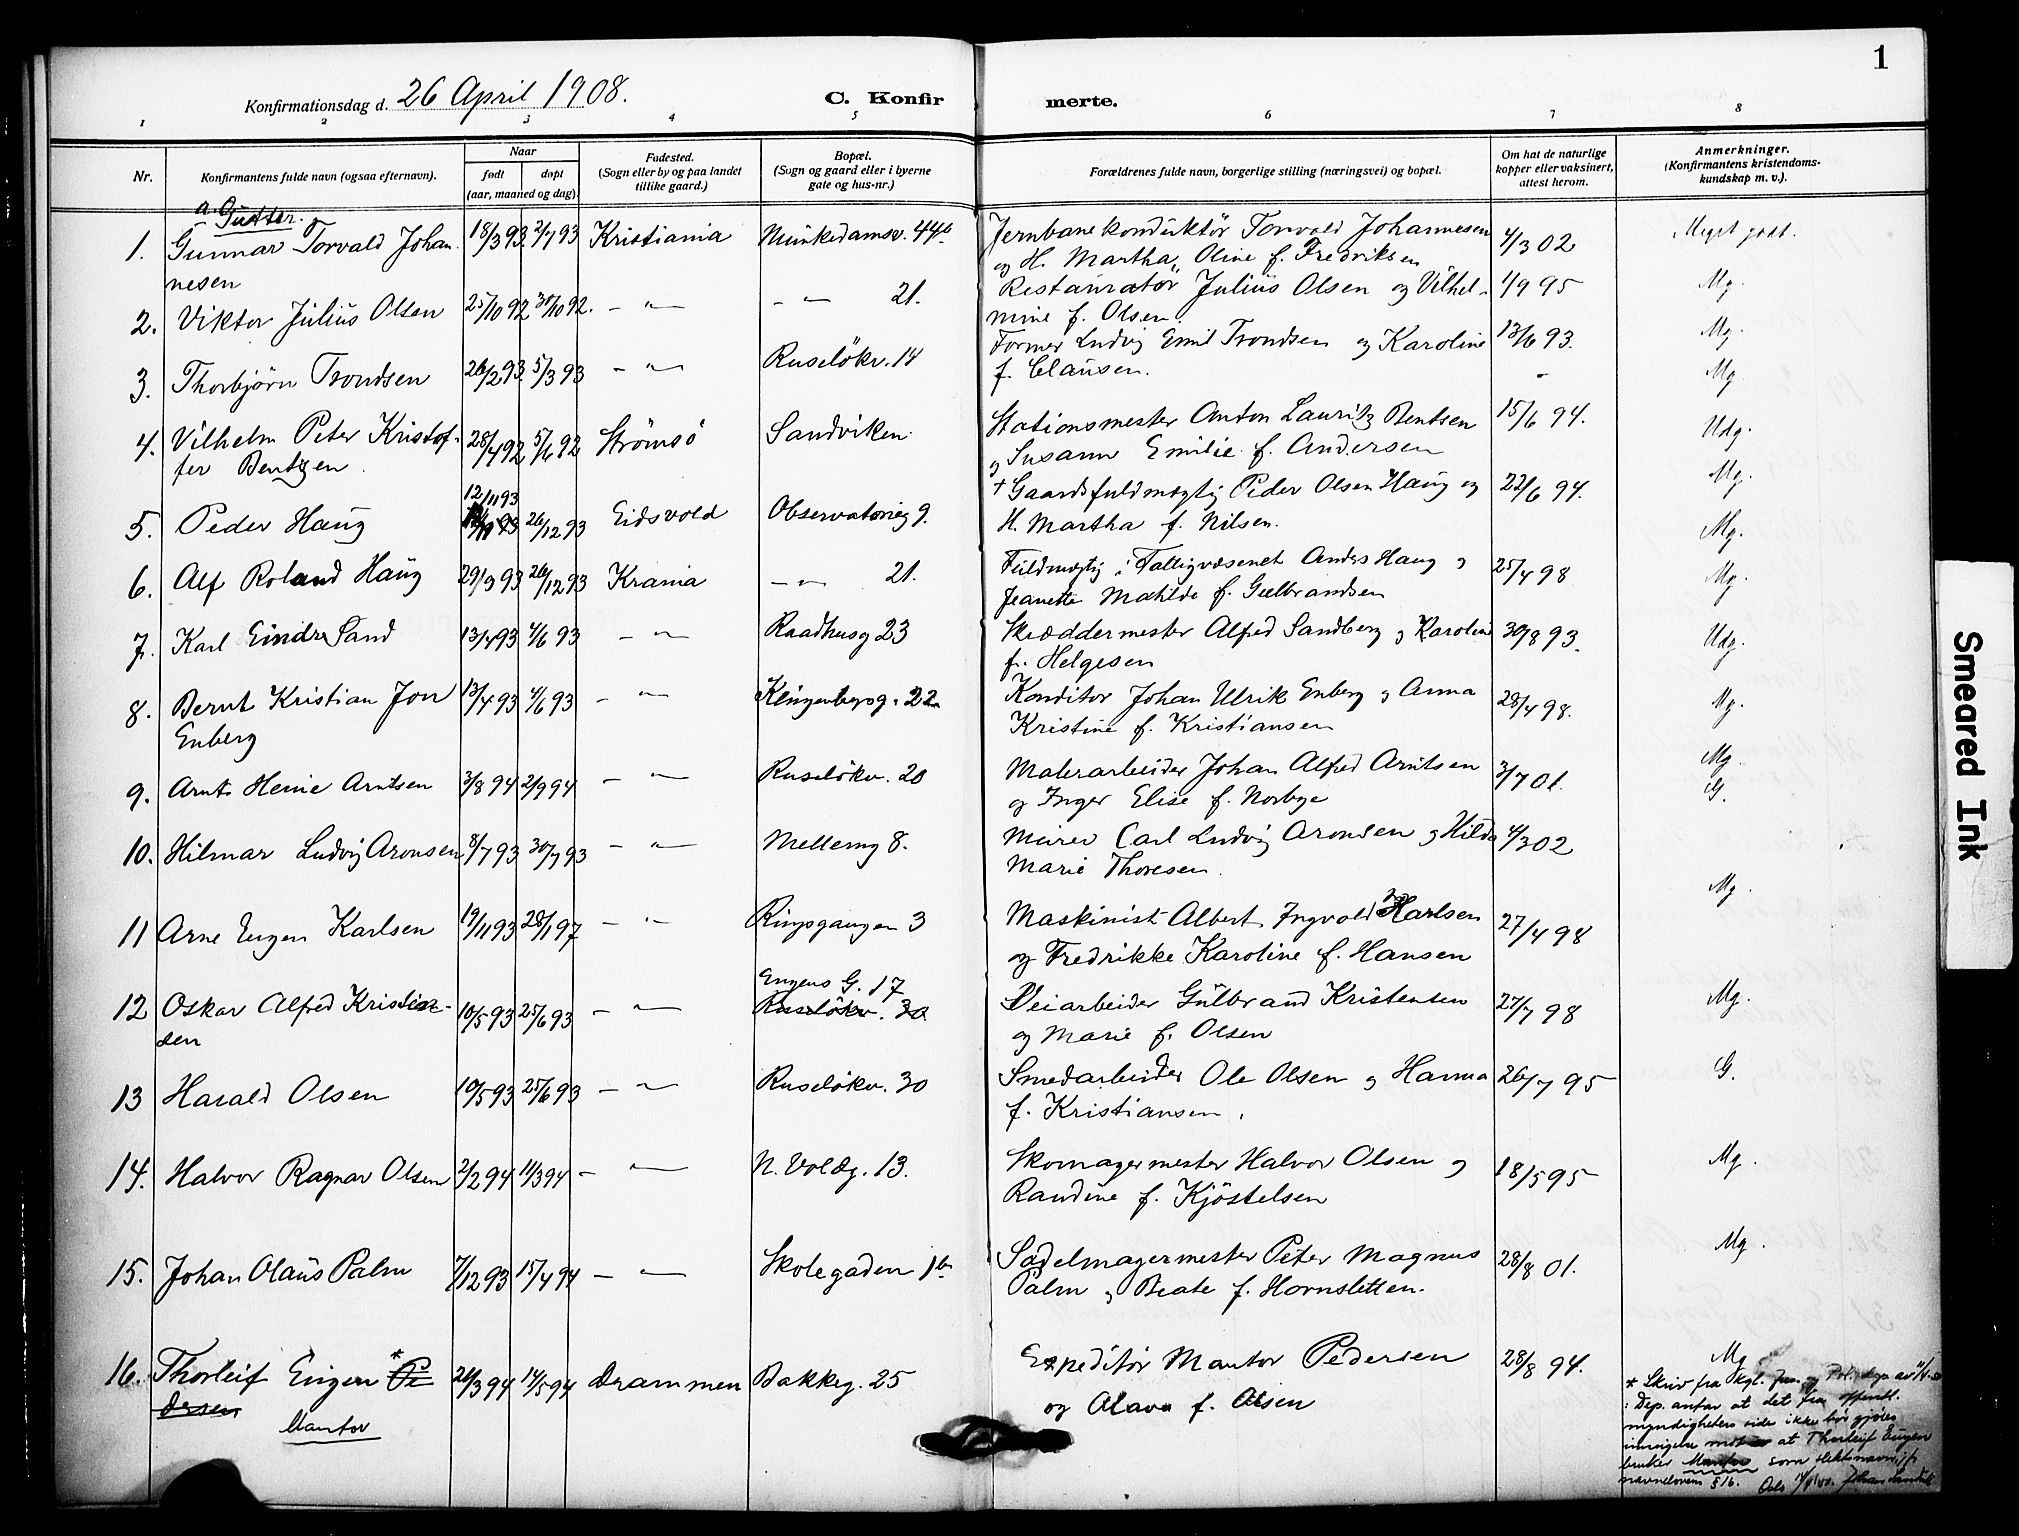 1
Konfirmationsdag d. 26 April 1908.
C. Konfir merte.
1 2 3 4 5 6 7 8
Nr.
Konfirmantens fulde navn (ogsaa efternavn).
Naar
født døpt
(aar, maaned og dag)
Fødested.
(Sogn eller by og paa landet
tillike gaard.)
Bopæl.
(Sogn og gaard eller i byerne
gate og hus-nr.)
Forældrenes fulde navn, borgerlige stilling (næringsvei) og bopæl.
Om hat de naturlige
kopper eller vaksinert,
attest herom.
Anmerkninger.
(Konfirmantens kristendoms-
kundskap m. v.).
a. Gutter.
1. Gunnar Torvald Johan- 18/3 93 2/7 93 Kristiania Munkedamsv. 44b Jernbanekonduktör Torvald Johannesen 4/3 02 Meget godt.
nesen og H. Martha Oline f. Fredriksen
2. Viktor Julius Olsen 25/10 92 30/10 92. - " - - " - 21. Restauratör Julius Olsen og Vilhel- 1/9 95 Mg.
mine f. Olsen.
3. Thorbjörn Trondsen 26/2 93. 5/3 93 - " - Ruselökv. 14 Former Ludvig Emil Trondsen og Karoline 13/6 93. Mg.
f. Clausen. Mg.
4. Vilhelm Peter Kristof- 28/4 92 5/6 92 Strömsö Sandviken. Stationsmester Anton Lauritz Bentsen 15/6 94. Udg.
fer Bentzen. og Susann Emilie f. Andersen
12/11 93
5. Peder Haug 26/12 93 Eidsvold Observatorieg 9. + Gaardsfuldmægtig Peder Olsen Haug og 22/6 94. Mg.
H. Martha f. Nilsen. Mg.
6. Alf Roland Haug 29/9 93 26/12 93 Krania - " - 21. Fuldmægtig i Fattigvæsenet Anders Haug og 25/4 98 Mg.
Jeanette Mathilde f. Gulbrandsen
7. Karl Eindre Sand 13/4 93 4/6 93 - " - Raadhusg 23 Skræddermester Alfred Sandberg og Karoline 30/8 93. Udg.
f. Helgesen
8. Bernt Kristian Jon 13/4 93 4/6 93 - " - Klingenbergg. 22 Konditor Johan Ulrik Enberg og Anna 28/4 98. Mg.
Enberg Kristine f. Kristiansen
9. Arnt Heine Arntsen 3/8 94 2/9 94 - " - Ruselökv. 20 Malerarbeider Johan Alfred Arntsen 3/7 01. Mg.
og Inger Elise f. Norbye G.
10. Hilmar Ludvig Aronsen 8/7 93 30/7 93 - " - Mellemg 8. Murer Carl Ludvig Aronsen og Hilda 4/3 02
Marie Thoresen.
11 Arne Eugen Karlsen 19/11 93 28/1 97 - " - Ringsgangen 3 Maskinist Albert Ingvald Karlsen 27/4 98 Mg.
og Fredrikke Karoline f. Hansen
Eugens G. 17
12 Oskar Alfred Kristian- 10/5 93 25/6 93 - " - Ruselökv. 30 Veiarbeider Gulbrand Kristensen 27/7 98 Mg.
sen og Marie f. Olsen
13 Harald Olsen 19/5 93 25/6 93 - " - Ruselökv. 30 Smedarbeider Ole Olsen og Hanna 26/7 95 G.
f. Kristiansen.
14. Halvor Ragnar Olsen 2/2 94 11/3 94 - " - N. Voldg. 13. Skomagermester Halvor Olsen og 18/5 95 Mg.
Randine f. Kjöstelsen
15. Johan Olaus Palm 7/12 93 15/4 94 - " - Skolegaden 1b Sadelmagermester Peter Magnus 28/8 01. Mg.
Palm og Beate f. Hornsletten.
16. Thorleif Eugen * Pe 26/3 94 14/5 94 Drammen Bakkeg. 25 Expeditör Mantor Pedersen 28/8 94. Mg
dersen og Alava f. Olsen
Mantor
* Skriv fra Kgl. Jus. og Pol. dep av
: Dep. anfør at det fra offentl.
myndigheters side ikke bör gjöres
at Thorleif Eugen
bruker Mantor som slektsnavn, jf.
navneloven § 16. Oslo
Smeared Ink